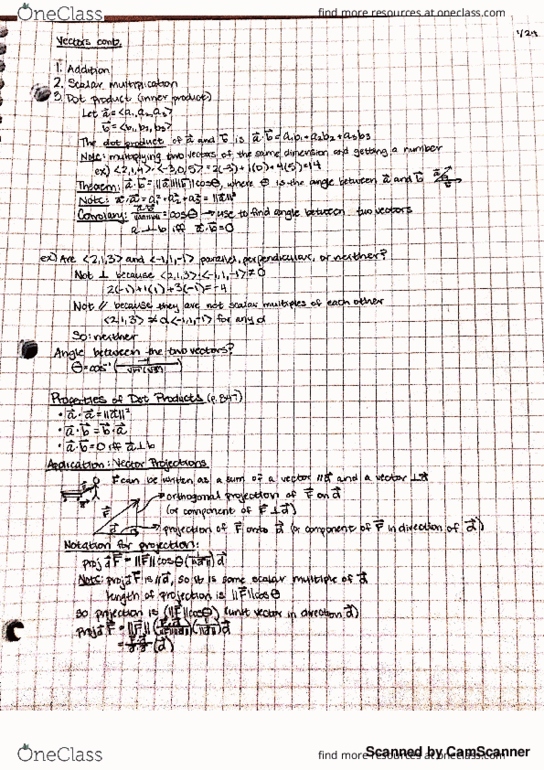 OneClass
find more resources at oneclass.com
1/24
Vectors cont.
1. Addition
2. Scalar multiplication
3. Dot product (inner product)
Let a⃗ = <a₁, a₂, a₃>
b⃗ = <b₁, b₂, b₃>
The dot product of a⃗ and b⃗ is a⃗·b⃗ = a₁b₁ + a₂b₂ + a₃b₃
Note: multiplying two vectors of the same dimension and getting a number
ex) <2,1,4>·<-3,0,5> = 2(-3) + 1(0) + 4(5) = 14
Theorem: a⃗·b⃗ = ||a⃗|| ||b⃗|| cosθ, where θ is the angle between a⃗ and b⃗
Note: a⃗·a⃗ = a₁² + a₂² + a₃² = ||a⃗||²
Corollary: = cosθ → use to find angle between two vectors
a⊥b iff a⃗·b⃗ = 0
ex) Are <2,1,3> and <-1,1,-1> parallel, perpendicular, or neither?
Not ⊥ because <2,1,3>·<-1,1,-1> ≠ 0
2(-1) + 1(1) + 3(-1) = -4
Not // because they are not scalar multiples of each other
<2,1,3> ≠ d<-1,1,-1> for any d
So: neither
Angle between the two vectors?
θ = cos⁻¹
Properties of Dot Products (p. 847)
• a⃗·a⃗ = ||a⃗||²
• a⃗·b⃗ = b⃗·a⃗
• a⃗·b⃗ = 0 iff a⃗⊥b
Application: Vector Projections
F⃗ can be written as a sum of a vector //d⃗ and a vector ⊥d⃗
→ orthogonal projection of F⃗ on d⃗
(or component of F⃗⊥d⃗)
F⃗
d⃗
→ projection of F⃗ onto d⃗ (or component of F⃗ in direction of d⃗)
Notation for projection:
proj d⃗ F⃗ = ||F⃗|| cosθ (1/||d⃗||) d⃗
Note: proj d⃗ F⃗ is //d⃗, so it is some scalar multiple of d⃗
length of projection is ||F⃗|| cosθ
so projection is (||F⃗|| cosθ) (unit vector in direction d⃗)
proj d⃗ F⃗ = ||F⃗|| (F⃗·d⃗/||F⃗|| ||d⃗||) (1/||d⃗||) d⃗
= F⃗·d⃗/d⃗·d⃗ (d⃗)
Scanned by CamScanner
OneClass
find more resources at oneclass.com